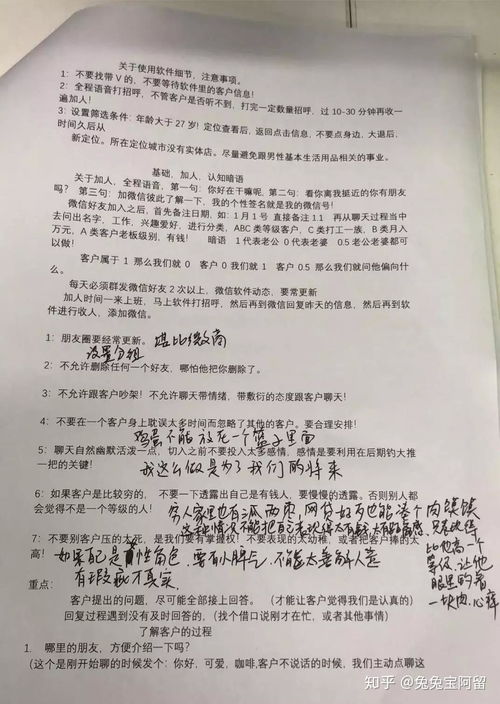 关于使用软件细节，注意事项。
1：不要找带 V 的，不要等待软件里的客户信息！
2：全程语音打招呼，不管客户是否听不到，打完一定数量招呼，过 10-30 分钟再收一
遍加人！
3：设置筛选条件：年龄大于 27 岁！定位查看后，返回点击信息，不要点身边，大退后，
时间久后从
新定位。所在定位城市没有实体店。尽量避免跟男性基本生活用品相关的事业。
基础，加人，认知暗语
关于加人，全程语音，第一句：你好在干嘛呢，第二句：看你离我挺近的你有朋友
吗？ 第三句：加微信彼此了解一下，我的个性签名就是我的微信号！
微信好友加入之后，首先备注日期，如：1 月 1 号 直接备注 1.1 再从聊天过程当中
去问出名字，工作，兴趣爱好，进行分类，ABC 类等级客户，C 类打工一族，B 类月入
万元，A 类客户老板级别，有钱！ 暗语 1 代表老公 0 代表老婆 0.5 老公老婆都可
以做！
客户属于 1 那么我们就 0 客户 0 我们就 1 客户 0.5 那么我们就问他偏向什
么。
每天必须群发微信好友 2 次以上，微信软件动态，要常更新
加人时间一来上班，马上软件打招呼，然后再到微信回复昨天的信息，然后再到软
件进行收人，添加微信。
1：朋友圈要经常更新。堪比微商
设置分组
2：不允许删除任何一个好友，哪怕他把你删除了。
3：不允许跟客户吵架！不允许聊天带情绪，带敷衍的态度跟客户聊天！
4：不要在一个客户身上耽误太多时间而忽略了其他的客户。要合理安排！
鸡蛋不能放在一个篮子里面
5：聊天自然幽默活泼一点，切入之前不要投入太多感情，感情是要利用在后期钓大推
一把的关键！ 我这么做是为了我们的将来
6：如果客户是比较穷的， 不要一下透露出自己是有钱人，要慢慢的透露。否则别人都
会觉得不是一个等级的人！ 穷人家里也有三瓜两枣，网贷
7：不要表现的压的太死，是我们要有掌握权！不要表现的太幼稚，或者把客户捧的太
高！如果自己是 性角色，要有小脾气，不能太善解人意
有瑕疵才真实
比他高一个
等级，让他
眼里的看
一块肉，心痒
重点：
客户提出的问题，尽可能全部接上回答。 （才能让客户觉得我们是认真的）
回复过程遇到没有及时回答的，（找个借口说刚才在忙，或者其他事情）
了解客户的过程
1. 哪里的朋友，方便介绍一下吗？
（这个是刚开始聊的时候发个：你好，可爱，咖啡,客户不说话的时候，我们主动点聊这
知乎 @兔兔宝阿留